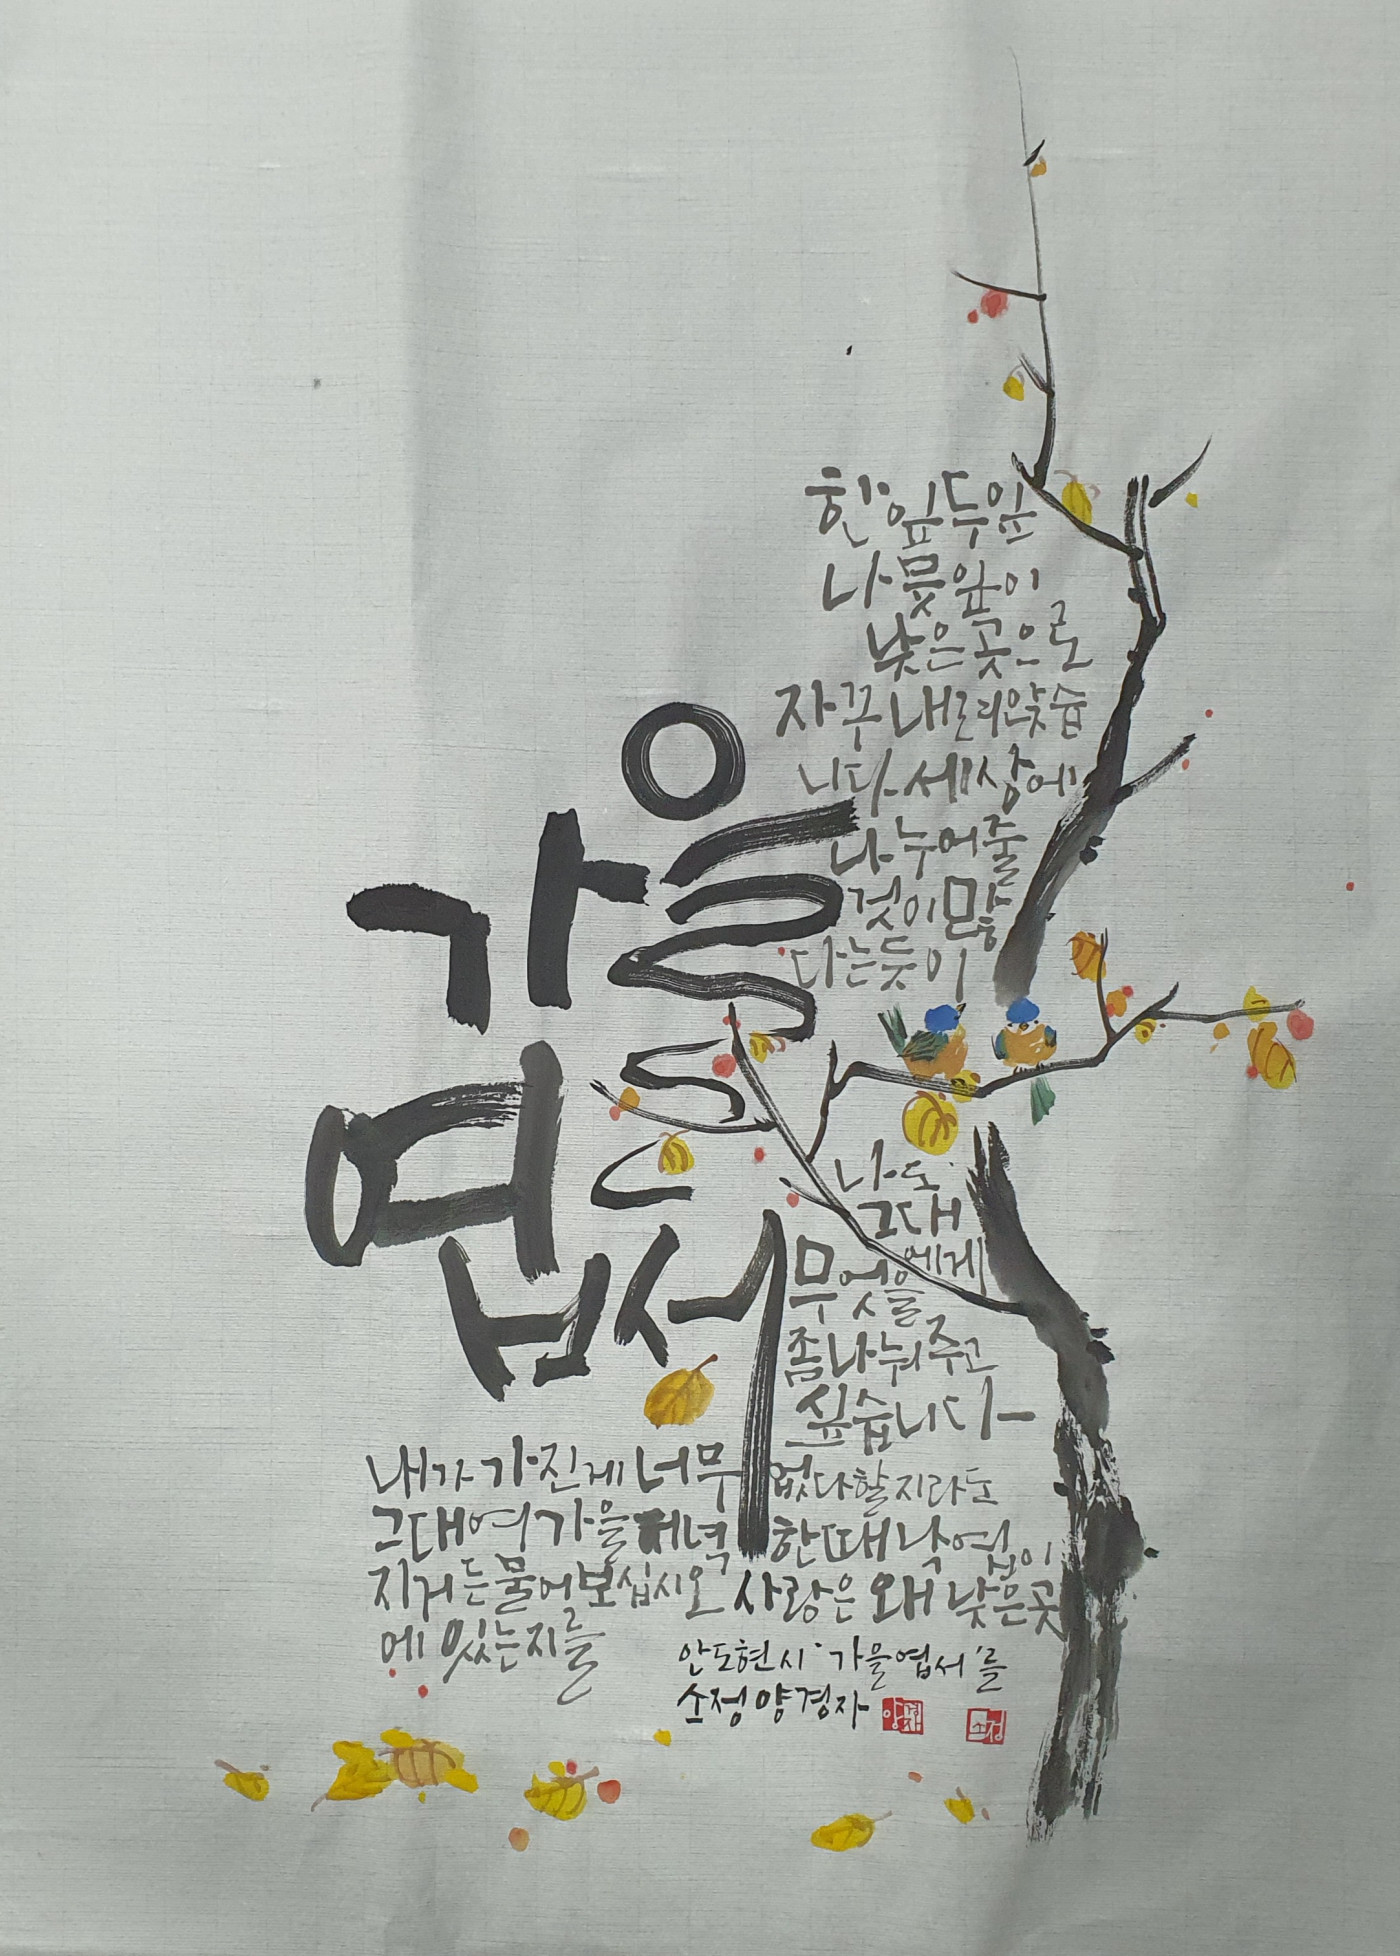 가을
엽서
한 잎 두 잎
나뭇잎이
낮은 곳으로
자꾸 내려앉습
니다 세상에
나누어 줄
것이 많
다는 듯이
나도
그대
에게
무엇을
좀 나눠주고
싶습니다
내가 가진 게 너무 없다 할지라도
그대여 가을 저녁 한때 낙엽이
지거든 물어보십시오 사랑은 왜 낮은 곳
에 있는지를
안도현 시 '가을 엽서'를
소정 양경자
양경자
소정